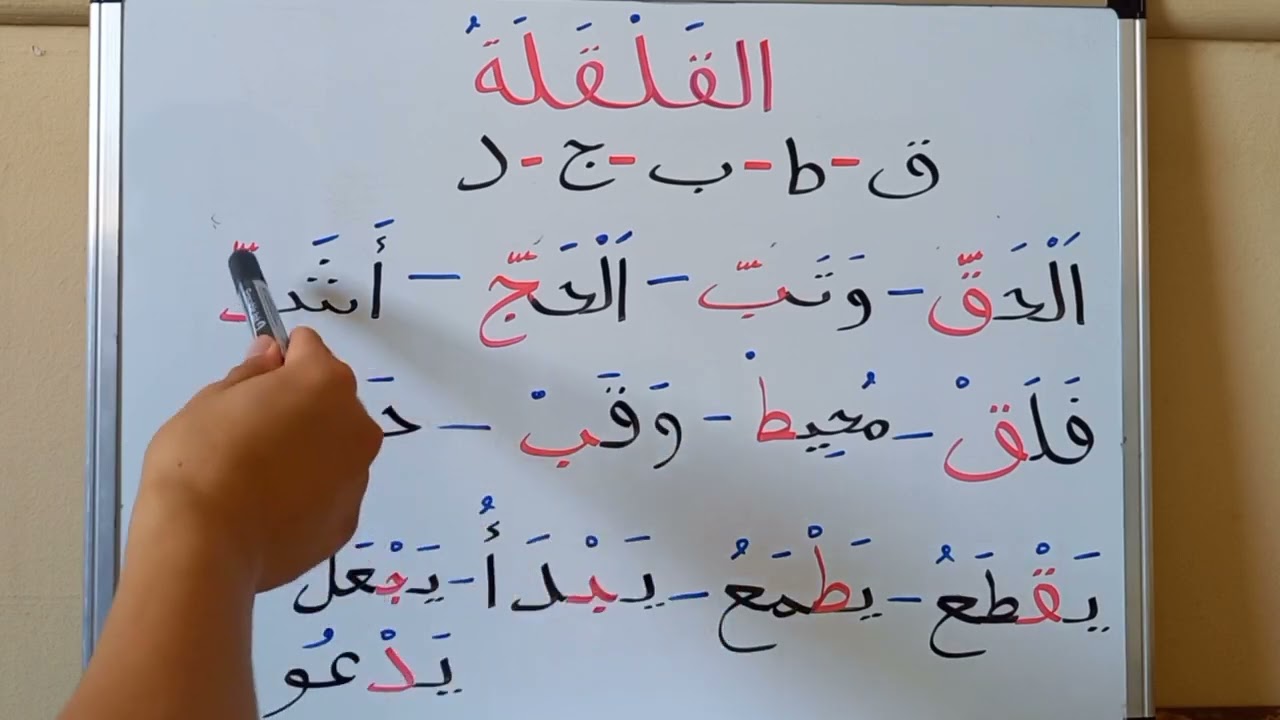 القَلْقَلَةُ
ق - ط - ب - ج - د
اَلْحَقّ - وَتَبّ - اَلْحَجّ -
فَلَقْ - مُحِيطْ - وَقَبْ -
يَقْطَعُ - يَطْمَعُ - يَبْدَأُ - يَجْعَل
يَدْعُو